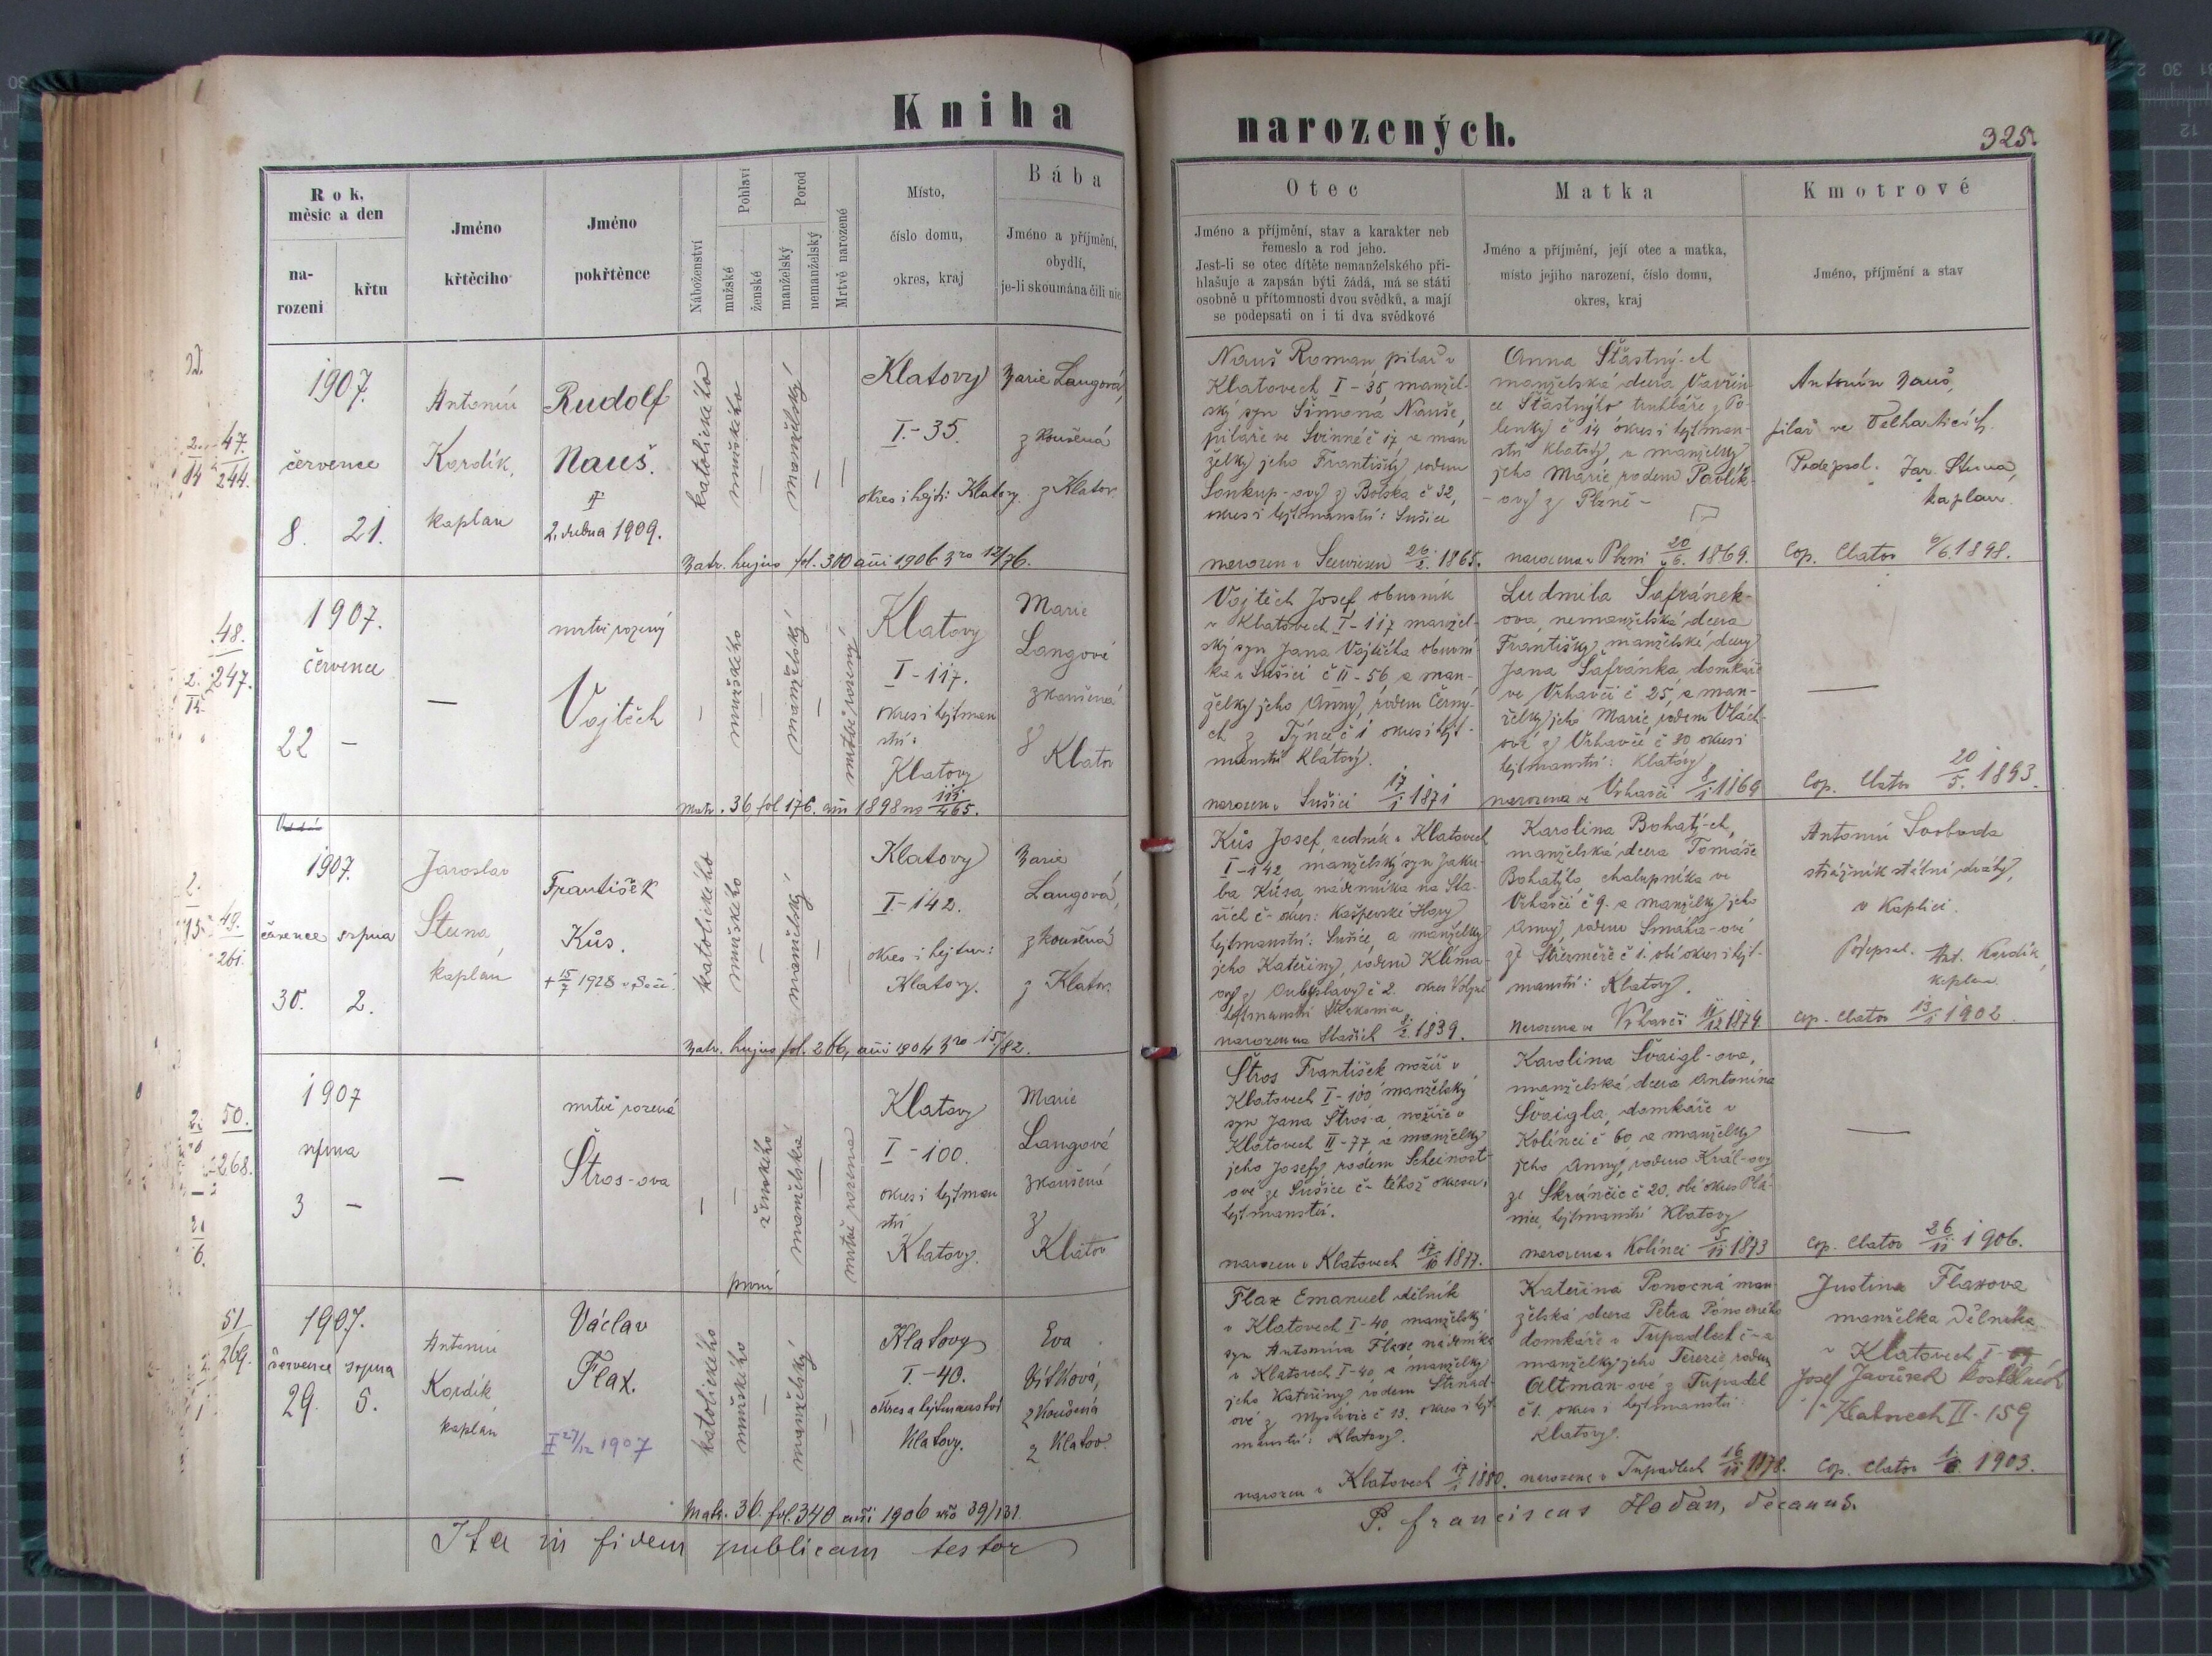 Kniha
narozených.
325.
Rok,
měsíc a den
na-
rozeni
křtu
Jméno
křtěcího
Jméno
pokřtěnce
Náboženství
Pohlaví
mužské
ženské
Porod
manželský
nemanželský
Mrtvě narozené
Místo,
číslo domu,
okres, kraj
Bába
Jméno a příjmění,
obydlí,
je-li skoumána čili nic
Otec
Jméno a příjmění, stav a karakter neb
řemeslo a rod jeho.
Jest-li se otec dítěte nemanželského při-
hlašuje a zapsán býti žádá, má se státi
osobně u přítomnosti dvou svědků, a mají
se podepsati on i ti dva svědkové
Matka
Jméno a příjmění, její otec a matka,
místo jejího narození, číslo domu,
okres, kraj
Kmotrové
Jméno, příjmění a stav
47.
244.
1907.
července
8. 21.
Antonín
Kordík,
kaplan
Rudolf
Nauš.
2. dubna 1909.
katolického
mužského
manželský
Klatovy
I.-35.
okres i hejt: Klatovy.
Marie Langová,
zkoušená
z Klatov.
Matr. hujus fol. 300 ani 1906 Nro 12/76.
Nauš Roman, pilař v
Klatovech I-35, manžel-
ský syn Šimona Nauše,
pilaře ve Svinné č 17 a man
želky jeho Františky rodem
Sonkup-ovy z Bolska č 32,
okres i hejtmanství: Sušice
narozen v Seewiesen 26/2. 1865.
Anna Šťastný-ch
manželská dcera Vavřin-
ce Šťastnýho truhláře z Po-
lenky č 14 okres i hejtman-
ství Klatovy, a manželky
jeho Marie, rodem Pavlík-
-ovy z Plzně -
narozena v Plzni 20/6. 1869.
Antonín Nauš,
pilař ve Velharticích.
Podepsal. Jar. Stuna,
kaplan.
Cop. Clatov 6/6. 1898.
48.
247.
1907.
července
22 -
mrtvě rozený
Vojtěch
mužského
manželský
mrtvě rozený
Klatovy
I-117.
okres i hejtman
ství:
Klatovy
Marie
Langové
zkoušená
z Klatov
Matr. 36 fol 176. ani 1898 no 111/465.
Vojtěch Josef, obuvník
v Klatovech I-117 manžel-
ský syn Jana Vojtěcha obuvní
ka v Sušici č II-56 a man-
želky jeho Anny, rodem Černý-
ch z Týnce č 1 okres i hejt-
manství Klatovy.
narozen v Sušici 17/1 1871
Ludmila Šafránek-
ova, nemanželská dcera
Františky, manželské dcery
Jana Šafránka domkáře
ve Vrhavči č 25, a man-
želky jeho Marie, rodem Vlách-
ové z Vrhavče č 20 okres i
hejtmanství: Klatovy
narozena ve Vrhavči 8/1 1869
Cop. Clatov 20/5. 1893.
49.
261.
1907.
července srpna
30. 2.
Jaroslav
Stuna,
kaplan
František
Kůs.
+ 15/7 1928
katolického
mužského
manželský
Klatovy
I.-142.
okres i hejtm:
Klatovy.
Marie
Langová,
zkoušená
z Klatov.
Matr. hujus fol. 266, ani 1904 Nro 15/82.
Kůs Josef, zedník v Klatovech
I-142 manželský syn Jaku-
ba Kůsa, nádenníka na Sta-
ších č- okres: Kašperské Hory
hejtmanství: Sušice, a manželky
jeho Kateřiny, rodem Klima-
narozen na Staších 8/2. 1839.
Karolina Bohatý-ch,
manželská dcera Tomáše
Bohatýho, chalupníka ve
Vrhavči č 9. a manželky jeho
Anny, rodem Smáha-ové
z Střezměře č 1. obé okres i hejt-
manství: Klatovy.
Narozena ve Vrhavči 11/12 1874.
Antonín Svoboda
strážník státní dráhy,
v Kaplici.
Podepsal. Ant. Kordík,
kaplan
Cop. Clatov 13/1 1902.
50.
268.
1907
srpna
3 -
mrtvě rozená
Štros-ova
ženského
první
manželská
mrtvě rozená
Klatovy
I-100.
okres i hejtman
ství
Klatovy.
Marie
Langové
zkoušená
z
Klatov
Štros František nožíř v
Klatovech I-100 manželský
syn Jana Štros-a, nožíře v
Klatovech II-77 a manželky
jeho Josefy, rodem Scheinost-
ové ze Sušice č- téhož okresu i
hejtmanství.
narozen v Klatovech 17/10 1877.
Karolina Švaigl-ova,
manželská dcera Antonína
Švaigla, domkáře v
Kolínci č 60 a manželky
jeho Anny, rodem Král-ovy
ze Skránčic č 20. obé okres Plá-
nice, hejtmanství Klatovy
narozena v Kolínci 5/11 1873
Cop. Clatov 26/11 1906.
51
269.
1907.
července srpna
29. 5.
Antonín
Kordík
kaplán
Václav
Flax.
27/12 1907
katolického
mužského
manželský
Klatovy
I.-40.
okres a hejtmanství
Klatovy.
Eva
Vítková,
zkoušená
z Klatov.
Matr. 36. fol. 340 ani 1906 nro 39/131.
Flax Emanuel dělník
v Klatovech I-40, manželský
syn Antonína Flaxe nádeníka
v Klatovech I-40 a manželky
jeho Kateřiny rodem Strnad-
ové z Myslovic č 13. okres i hejt-
manství: Klatovy.
narozen v Klatovech 17/1 1880.
Kateřina Ponocná man-
želská dcera Petra Ponocného
domkáře v Tupadlech č- a
manželky jeho Terezie rodem
Altman-ové z Tupadel
č 1. okres i hejtmanství:
Klatovy.
narozena v Tupadlech 16/11 1878.
Justina Flaxova
manželka dělníka
v Klatovech I-
Josef Javůrek kostelník
v Klatovech II-159
Cop. Clatov 1903.
Ita in fidem publicam testor
P. Franciscus Hoďan, decanus.